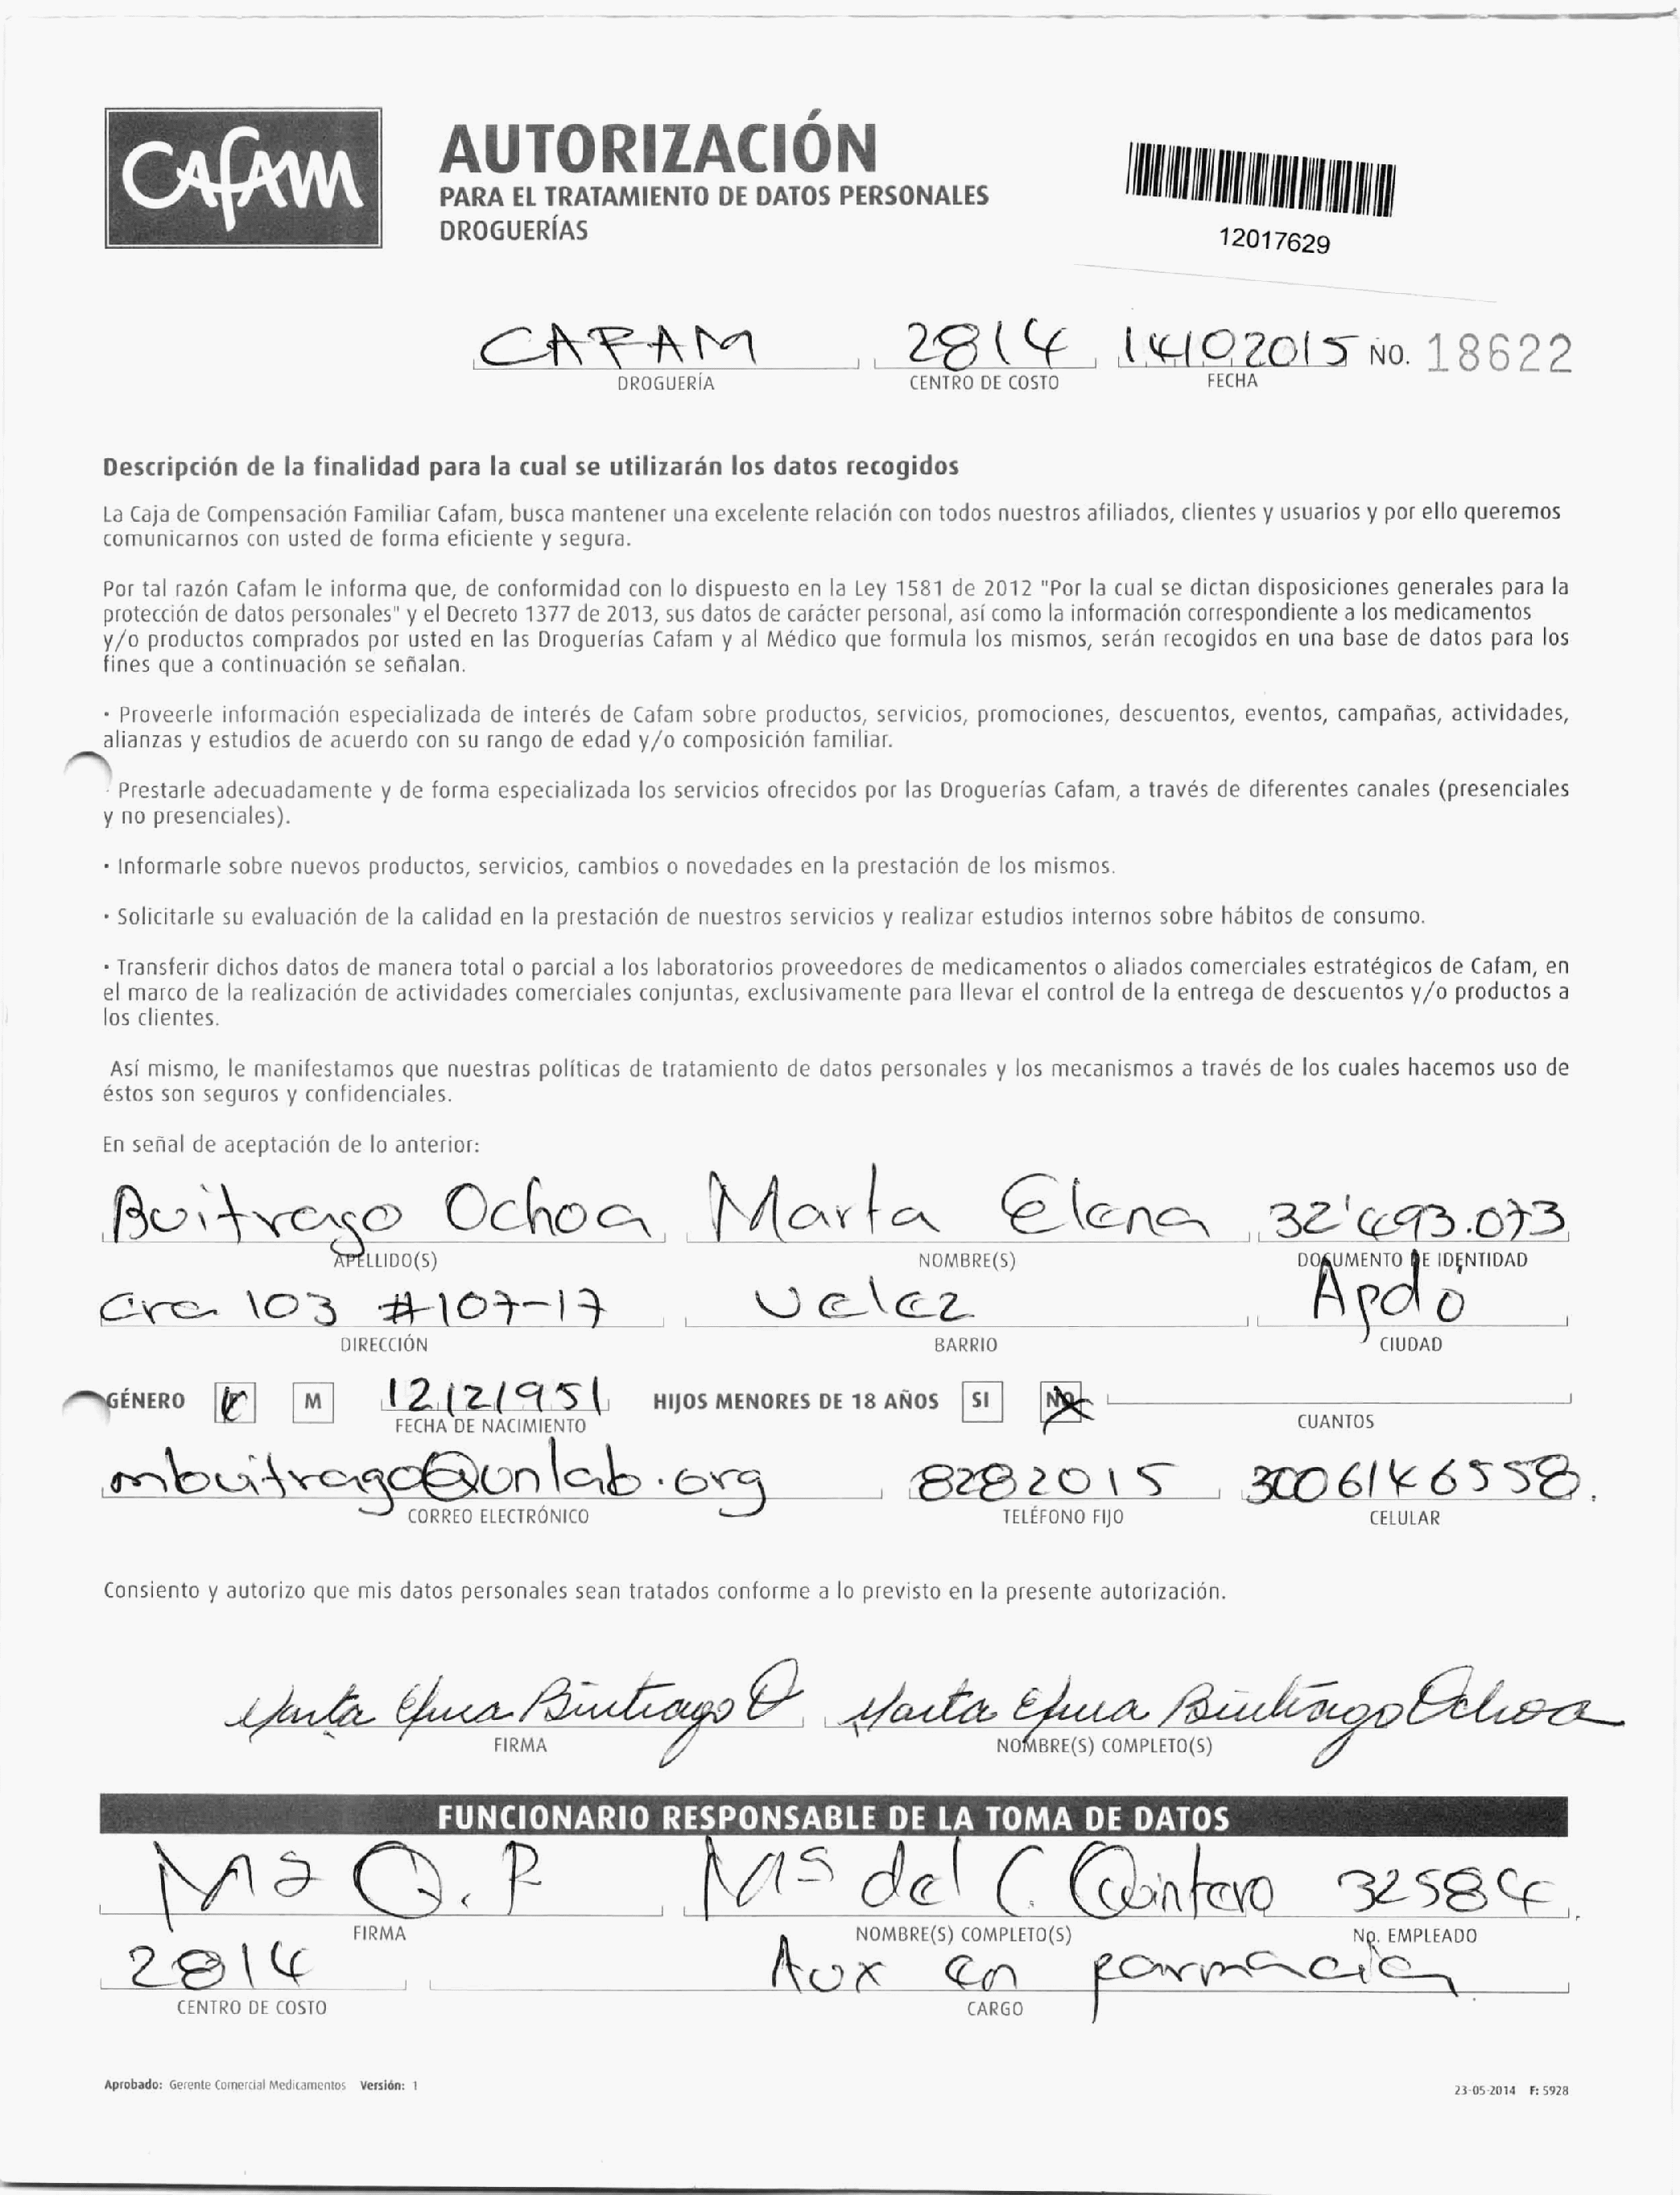 CAFAM
AUTORIZACIÓN
PARA EL TRATAMIENTO DE DATOS PERSONALES
DROGUERÍAS
12017629
CAFAM 2814 14102015 NO. 18622
DROGUERÍA CENTRO DE COSTO FECHA
Descripción de la finalidad para la cual se utilizarán los datos recogidos
La Caja de Compensación Familiar Cafam, busca mantener una excelente relación con todos nuestros afiliados, clientes y usuarios y por ello queremos
comunicarnos con usted de forma eficiente y segura.
Por tal razón Cafam le informa que, de conformidad con lo dispuesto en la Ley 1581 de 2012 "Por la cual se dictan disposiciones generales para la
protección de datos personales" y el Decreto 1377 de 2013, sus datos de carácter personal, así como la información correspondiente a los medicamentos
y/o productos comprados por usted en las Droguerías Cafam y al Médico que formula los mismos, serán recogidos en una base de datos para los
fines que a continuación se señalan.
· Proveerle información especializada de interés de Cafam sobre productos, servicios, promociones, descuentos, eventos, campañas, actividades,
alianzas y estudios de acuerdo con su rango de edad y/o composición familiar.
· Prestarle adecuadamente y de forma especializada los servicios ofrecidos por las Droguerías Cafam, a través de diferentes canales (presenciales
y no presenciales).
· Informarle sobre nuevos productos, servicios, cambios o novedades en la prestación de los mismos.
· Solicitarle su evaluación de la calidad en la prestación de nuestros servicios y realizar estudios internos sobre hábitos de consumo.
· Transferir dichos datos de manera total o parcial a los laboratorios proveedores de medicamentos o aliados comerciales estratégicos de Cafam, en
el marco de la realización de actividades comerciales conjuntas, exclusivamente para llevar el control de la entrega de descuentos y/o productos a
los clientes.
Así mismo, le manifestamos que nuestras políticas de tratamiento de datos personales y los mecanismos a través de los cuales hacemos uso de
éstos son seguros y confidenciales.
En señal de aceptación de lo anterior:
Buitrago Ochoa Marta Elena 32'493.073
APELLIDO(S) NOMBRE(S) DOCUMENTO DE IDENTIDAD
Cra 103 #107-17 Velez Apdo
DIRECCIÓN BARRIO CIUDAD
GÉNERO M 12121951 HIJOS MENORES DE 18 AÑOS SI NO
FECHA DE NACIMIENTO CUANTOS
mbuitrago@unlab.org 8282015 3006146558.
CORREO ELECTRÓNICO TELÉFONO FIJO CELULAR
Consiento y autorizo que mis datos personales sean tratados conforme a lo previsto en la presente autorización.
Marta Elena Buitrago O Marta Elena Buitrago Ochoa
FIRMA NOMBRE(S) COMPLETO(S)
FUNCIONARIO RESPONSABLE DE LA TOMA DE DATOS
Ma Q. P Ms del C. Quintero 32584
FIRMA NOMBRE(S) COMPLETO(S) No. EMPLEADO
2814 Aux en farmacia
CENTRO DE COSTO CARGO
Aprobado: Gerente Comercial Medicamentos Versión: 1
23-05-2014 F: 5928